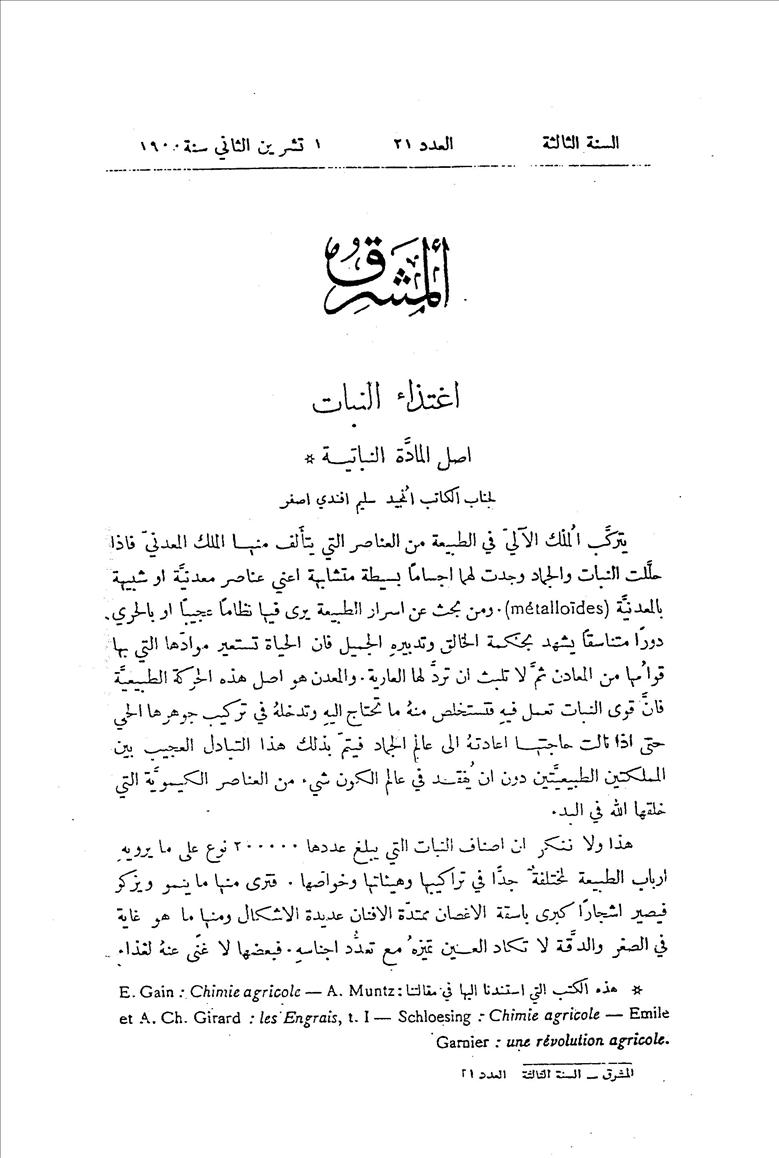 السنة الثالثة العدد ٢١ ١ تشرين الثاني سنة ١٩٠٠
ألمشرق
اغتذاء النبات
اصل المادَّة النباتيــة *
لجناب الكاتب المجيد سليم افندي اصفر
يتركَّب المُلك الآليّ في الطبيعة من العناصر التي يتألف منهـا الملك المعدنيّ فاذا
حلَّلت النبات والجماد وجدت لهما اجسامًا بسيطة متشابهة اعني عناصر معدنيَّة او شبيهة
بالمعدنيَّة (métalloïdes). ومن بحث عن اسرار الطبيعة يرى فيها نظامًا عجيبًا او بالحري
دورًا متناسقًا يشهد بحكمة الخالق وتدبيرهِ الجميل فان الحياة تستعير موادّها التي بها
قوامُها من المعادن ثمَّ لا تلبث ان تردَّ لها العارية. والمعدن هو اصل هذه الحركة الطبيعيَّة
فانَّ قوى النبات تعمل فيهِ فتستخلص منهُ ما تحتاج اليهِ وتدخلهُ في تركيب جوهرها الحي
حتى اذا نالت حاجتهـا اعادتهُ الى عالم الجماد فيتمّ بذلك هذا التبادل العجيب بين
المملكتين الطبيعيَّتين دون ان يُفقـد في عالم الكون شيء من العناصر الكيمويَّة التي
خلقها الله في البد.
هذا ولا ننكر ان اصناف النبات التي يبلغ عددها ٢٠٠٠٠٠ نوع على ما يرويهِ
ارباب الطبيعة لمختلفة جدًّا في تراكيبها وهيئاتها وخواصها. فترى منها ما ينمو ويزكو
فيصير اشجارًا كبرى باسقة الاغصان ممتدّة الافنان عديدة الاشكال ومنها ما هو غاية
في الصغر والدقَّة لا تكاد العـين تميّزهُ مع تعدُّد اجناسهِ. فبعضها لا غنًى عنهُ لغذاء
* هذه الكتب التي استندنا اليها في مقالتنا: E. Gain : Chimie agricole — A. Muntz
et A. Ch. Girard : les Engrais, t. I — Schloesing : Chimie agricole — Emile
Garnier : une révolution agricole.
المشرق – السنة الثالثة العدد ٢١